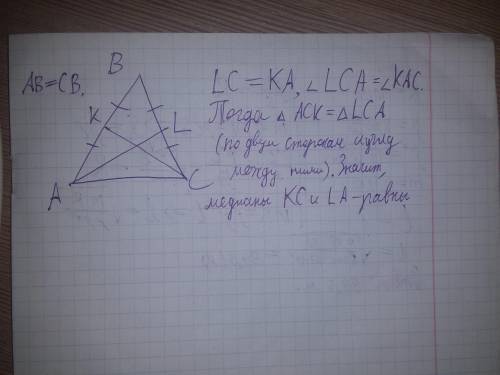 B
AB=CB.
K
L
A
C
LC=KA, ∠LCA=∠KAC.
Тогда △ ACK=△LCA
(по двум сторонам и углу
между ними). Значит,
медианы KC и LA-равны